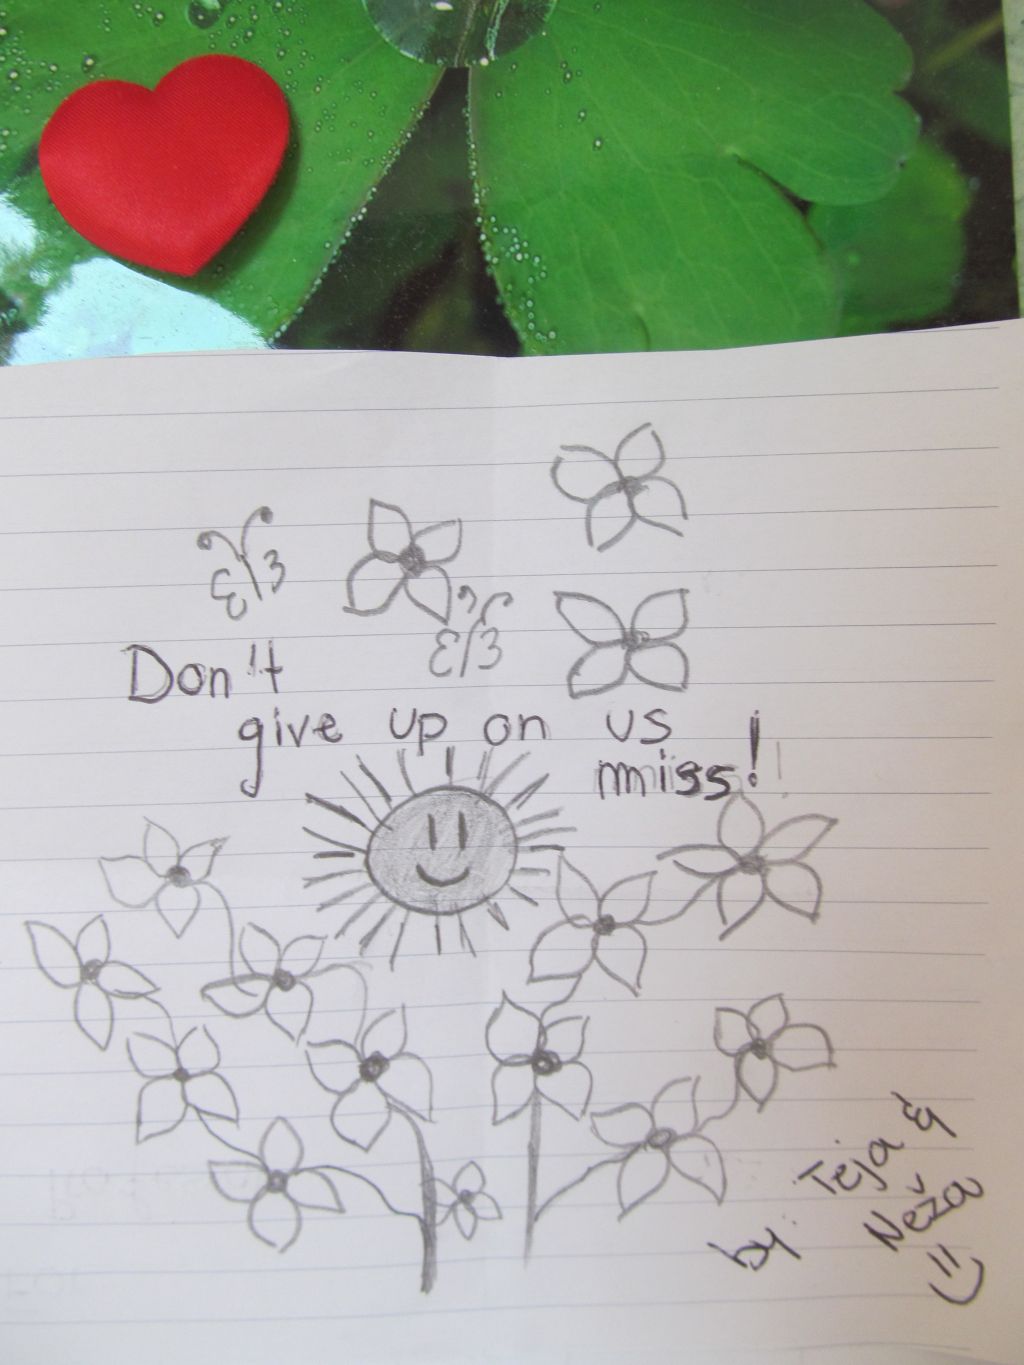 Don't
give up on us
miiss!
by: Teja &
Neža